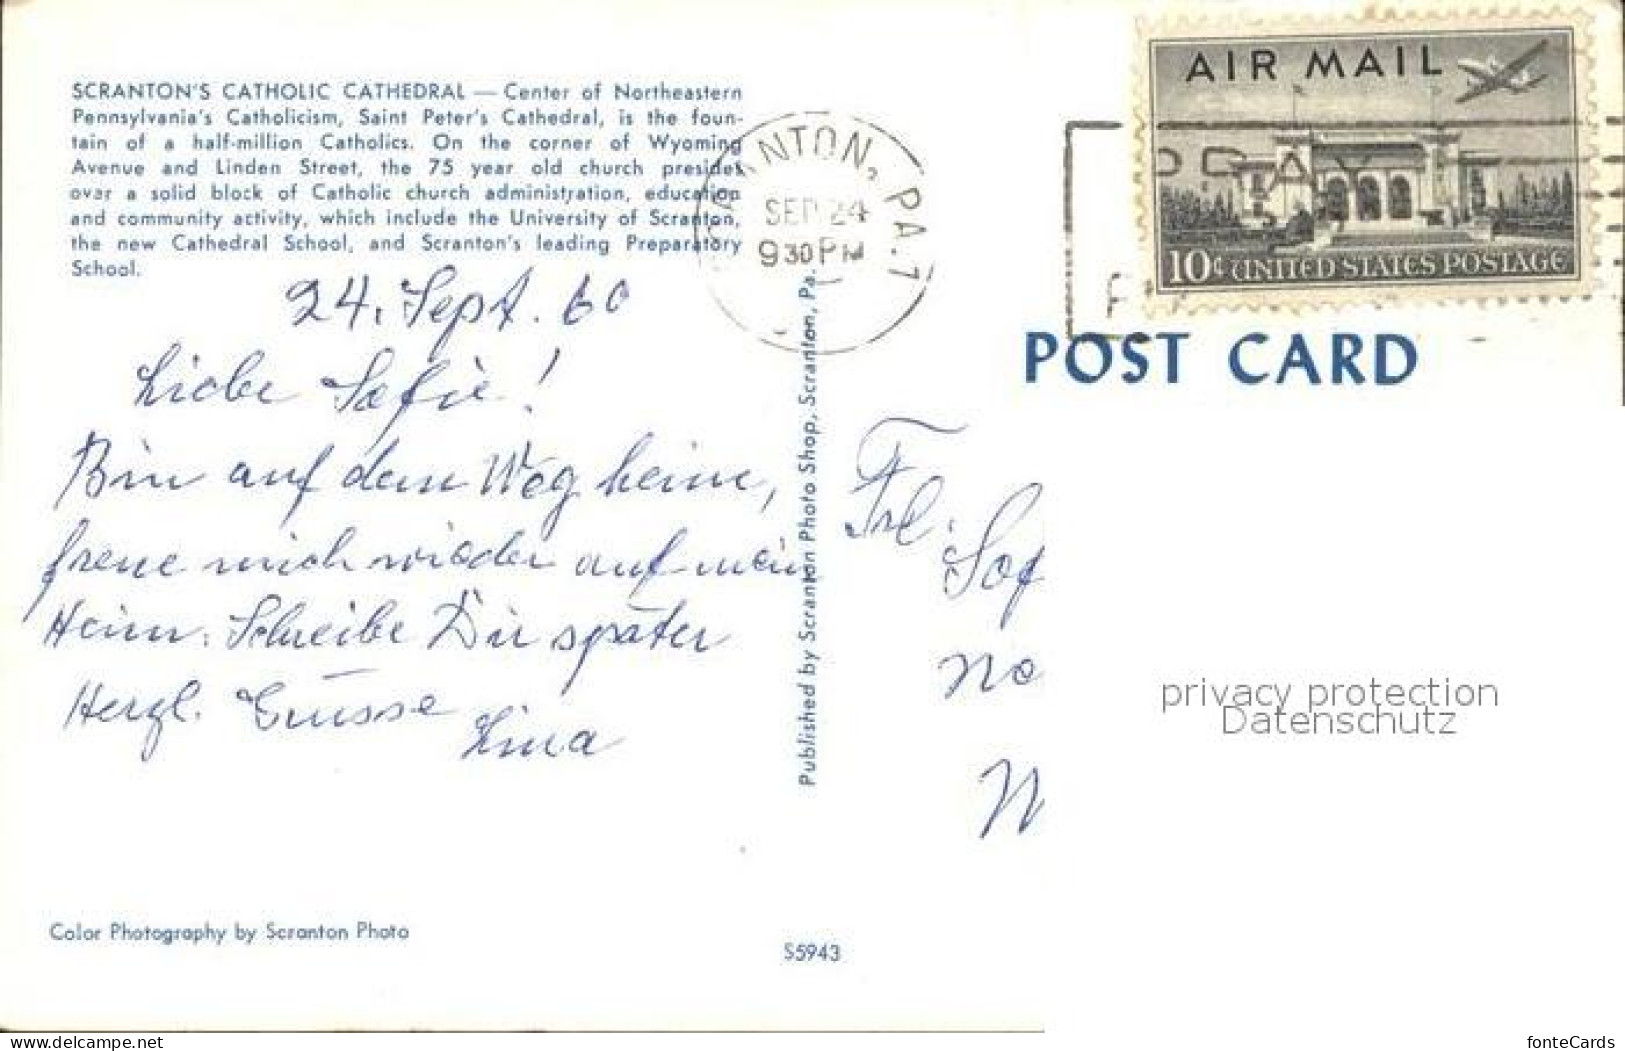 SCRANTON'S CATHOLIC CATHEDRAL — Center of Northeastern
Pennsylvania's Catholicism, Saint Peter's Cathedral, is the foun-
tain of a half-million Catholics. On the corner of Wyoming
Avenue and Linden Street, the 75 year old church presides
over a solid block of Catholic church administration, education
and community activity, which include the University of Scranton,
the new Cathedral School, and Scranton's leading Preparatory
School.
24. Sept. 60
Liebe Sofie!
Bin auf dem Weg heim,
freue mich wieder auf mein
Heim. Schreibe Dir später
Herzl. Grüsse
Lina
Color Photography by Scranton Photo
S5943
Published by Scranton Photo Shop, Scranton, Pa.
SCRANTON, PA. 1
SEP 24
9 30 PM
PRAY
AIR MAIL
10¢ UNITED STATES POSTAGE
POST CARD
Frl.
Sof
No
W
privacy protection
Datenschutz
www.delcampe.net
fonteCards